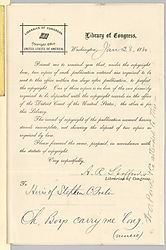 LIBRARIAN OF CONGRESS
Copyright Office
UNITED STATES OF AMERICA
Library of Congress,
Washington, Jan 28, 18
Permit me to remind you that, under the copyright
law, two copies of each publication entered are required to be
sent to this office within ten days after publication, to perfect
copyright. One of these copies is in lieu of the one formerly
required to be deposited with the copyright records in the office
of the District Court of the United States; the other is for
this Library.
The record of the copyright publication named herein
stands incomplete, not showing the deposit of two copies
as required by law.
Please forward the same, prepaid, in accordance with
the statute of copyright.
Very respectfully,
A. R. Spofford
Librarian of Congress.
To
Heirs of Stephen C. Foster
Oh, Boys carry me 'long
(music)